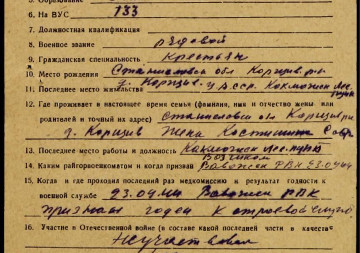 6. На ВУС 133
7. Должностная квалификация
8. Военное звание рядовой
9. Гражданская специальность Крестьян
10. Место рождения Станиславск обл Коршив р-н
11. Последнее место жительства с. Коршив, У АССР. Какможск Лес
12. Где проживает в настоящее время семья (фамилия, имя и отчество жены или
родителей и точный их адрес) Станиславск обл Коршив рн
с. Коршив Жена
13. Последнее место работы и должность Какможск Леспункт
Возчиком
14. Каким райгорвоенкоматом и когда призван Вавожск РВК 23.04.44
15. Когда и где проходил последний раз медкомиссию и результат годности к
военной службе 23.04.44 Вавожск РВК
признан годен к строевой службе
16. Участие в Отечественной войне (в составе какой последней части и в качестве
Не участвовал